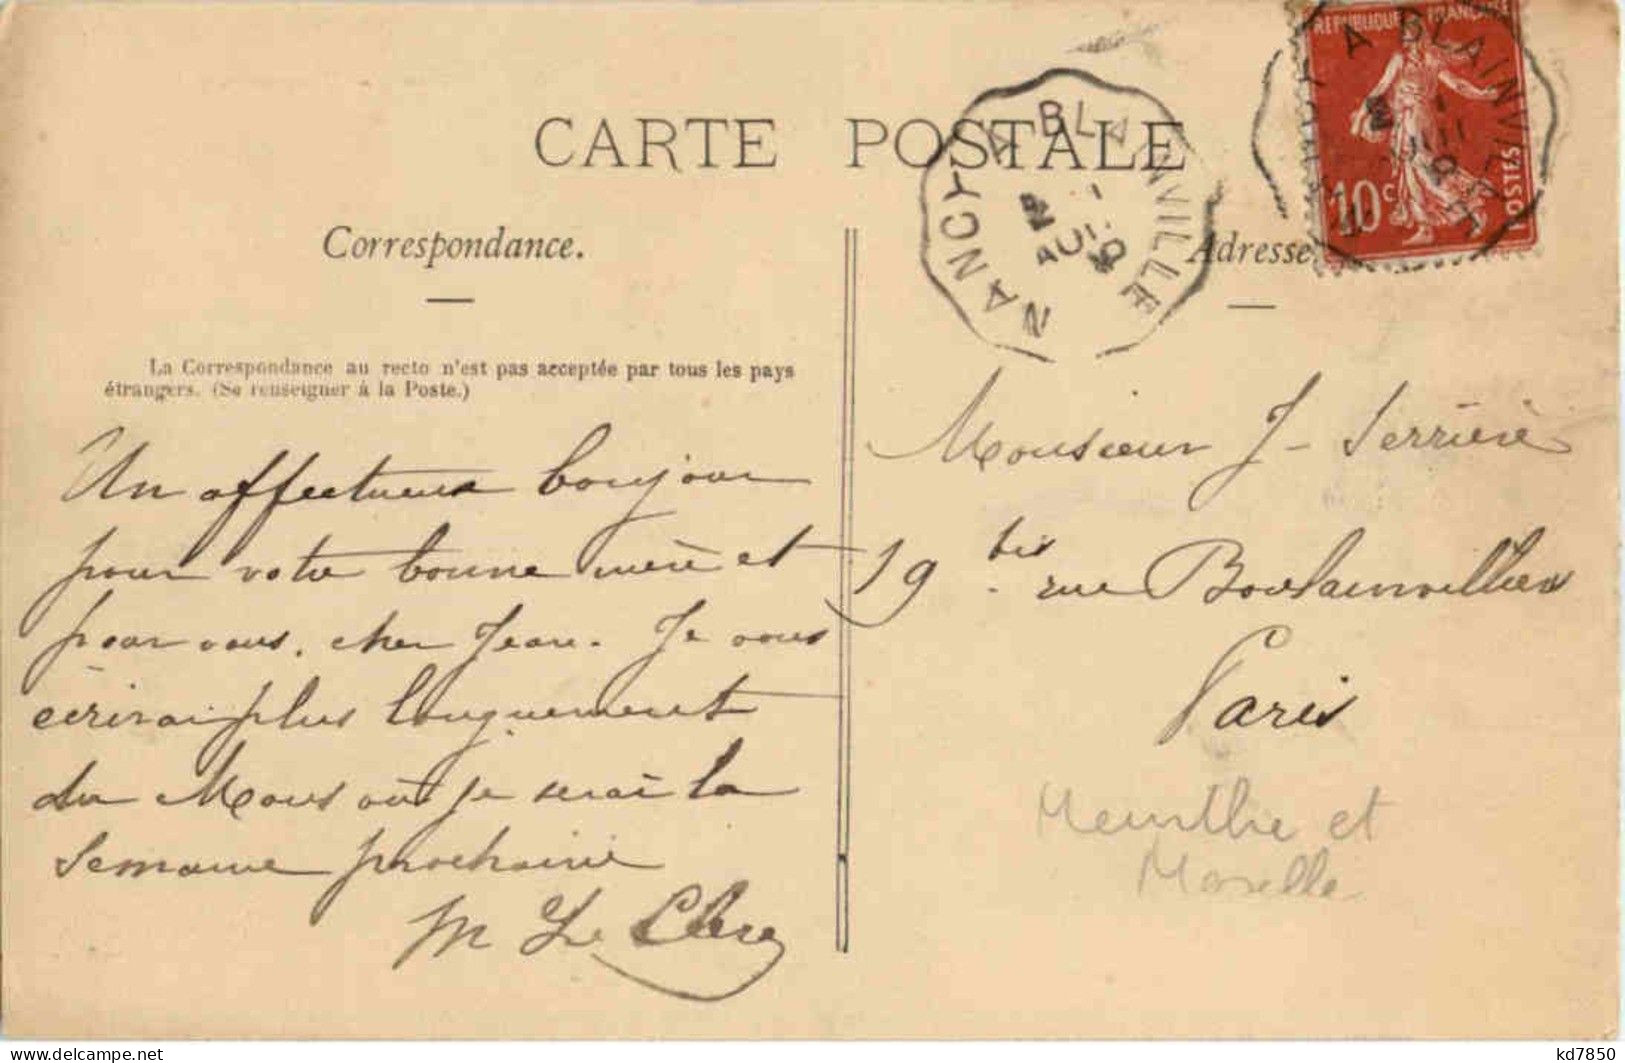 CARTE POSTALE
Correspondance.
Adresse
La Correspondance au recto n'est pas acceptée par tous les pays
étrangers. (Se renseigner à la Poste.)
Un affectueux bonjour
pour votre bonne mère et
pour vous, cher Jean. Je vous
écrirai plus longuement
du Mans où je serai la
semaine prochaine
M Le Clerc
NANCY A BLAINVILLE
REPUBLIQUE FRANÇAISE
10c
POSTES
A BLAINVILLE
Monsieur J. Serrière
19 bis rue Boulainvilliers
Paris
Meurthe et
Moselle
delcampe.net
kd7850